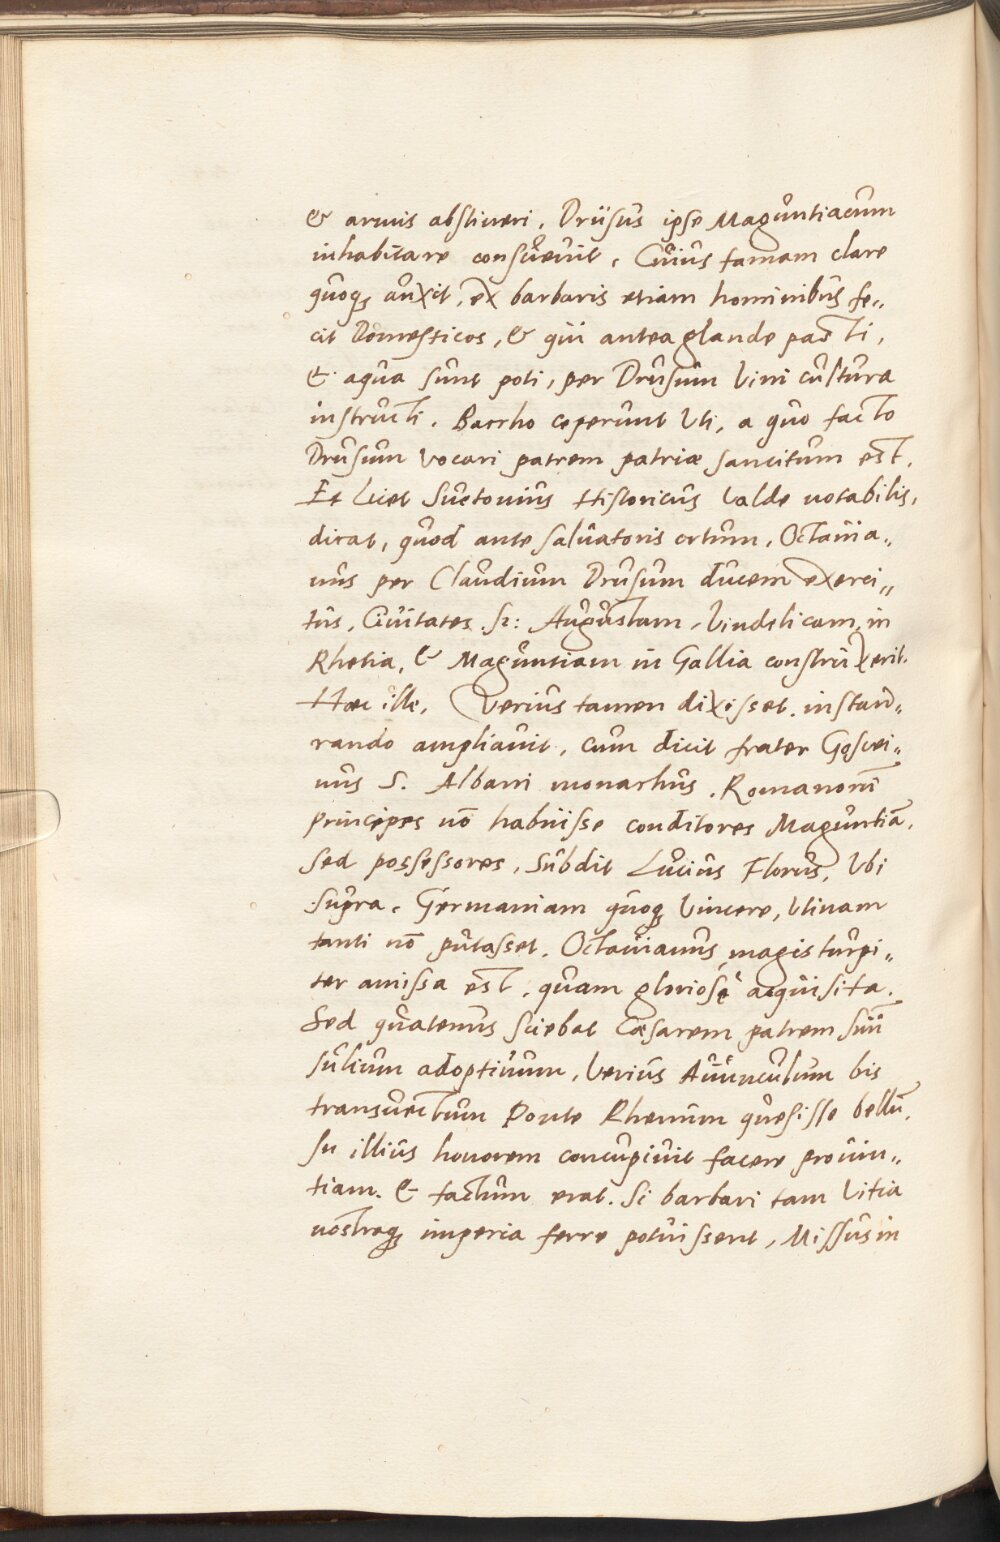 & armis abstineri. Drusus ipse Maguntiacum
inhabitare consuevit. Cuius famam clare
quoq; auxit, ex barbaris etiam hominibus fe„
cit Domesticos, & qui antea glande pasti,
& aqua sunt poti, per Drusum Vini cultura
instructi. Baccho ceperunt Uti, a quo facto
Drusum vocari patrem patriæ sancitum est.
Et licet Suetonius Historicus Valde notabilis,
dicat, quod ante salvatoris ortum, Octavia„
nus per Claudium Drusum ducem exerci„
tus, Civitates. sz: Augustam, Vindelicam, in
Rhetia, & Maguntiam in Gallia construxerit.
Hæc ille, Verius tamen dixisset. instau„
rando ampliavit, cum dicit frater Goswi„
nus S. Albani monachus. Romanorū
principes nō habuisse conditores Maguntiā,
sed possessores, Subdit Lucius Florus, Ubi
supra. Germaniam quoq; Vincere, Utinam
tanti nō putasset. Octavianus magis turpi„
ter amissa est, quam gloriosę acquisita.
Sed quatenus sciebat Cæsarem patrem suū
Iulium adoptivum, Verius Avunculum bis
transvectum Ponte Rhenum quesisse bellū.
In illius honorem concupivit facere provin„
tiam. & factum erat. Si barbari tam Vitia
nostraq; imperia ferre potuissent, Missus in